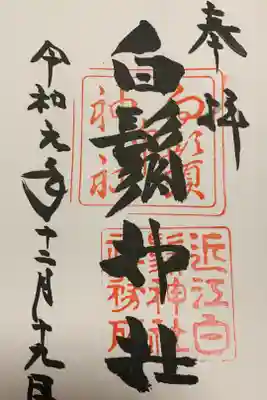 奉拝
白鬚神社
令和元年十二月十九日
近江白
鬚神社
社務所